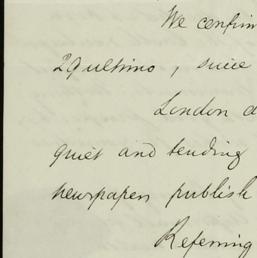 We confirm
29 ultimo, since
London a
quiet and tending
newspapers publish
Referring